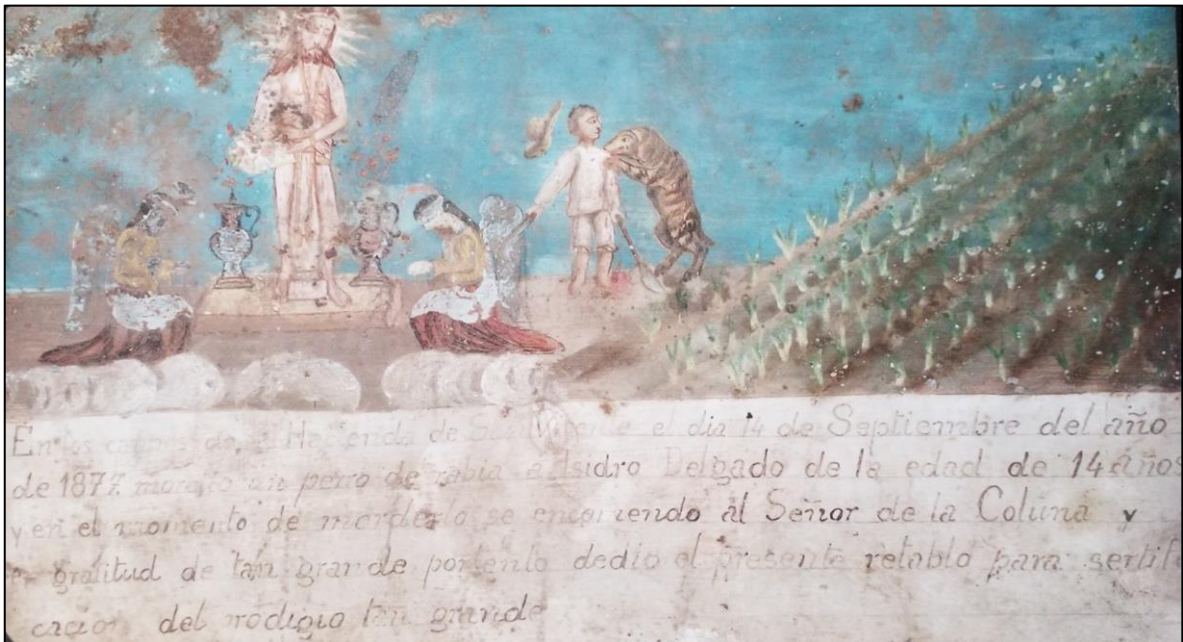 En los campos de la Hacienda de San Vicente el dia 14 de Septiembre del año
de 1877 mordio un perro de rabia a Isidro Delgado de la edad de 14 años
y en el momento de morderlo se encomendo al Señor de la Coluna y
en gratitud de tan grande portento dedio el presente retablo para sertifi
cacion del rodigio tan grande